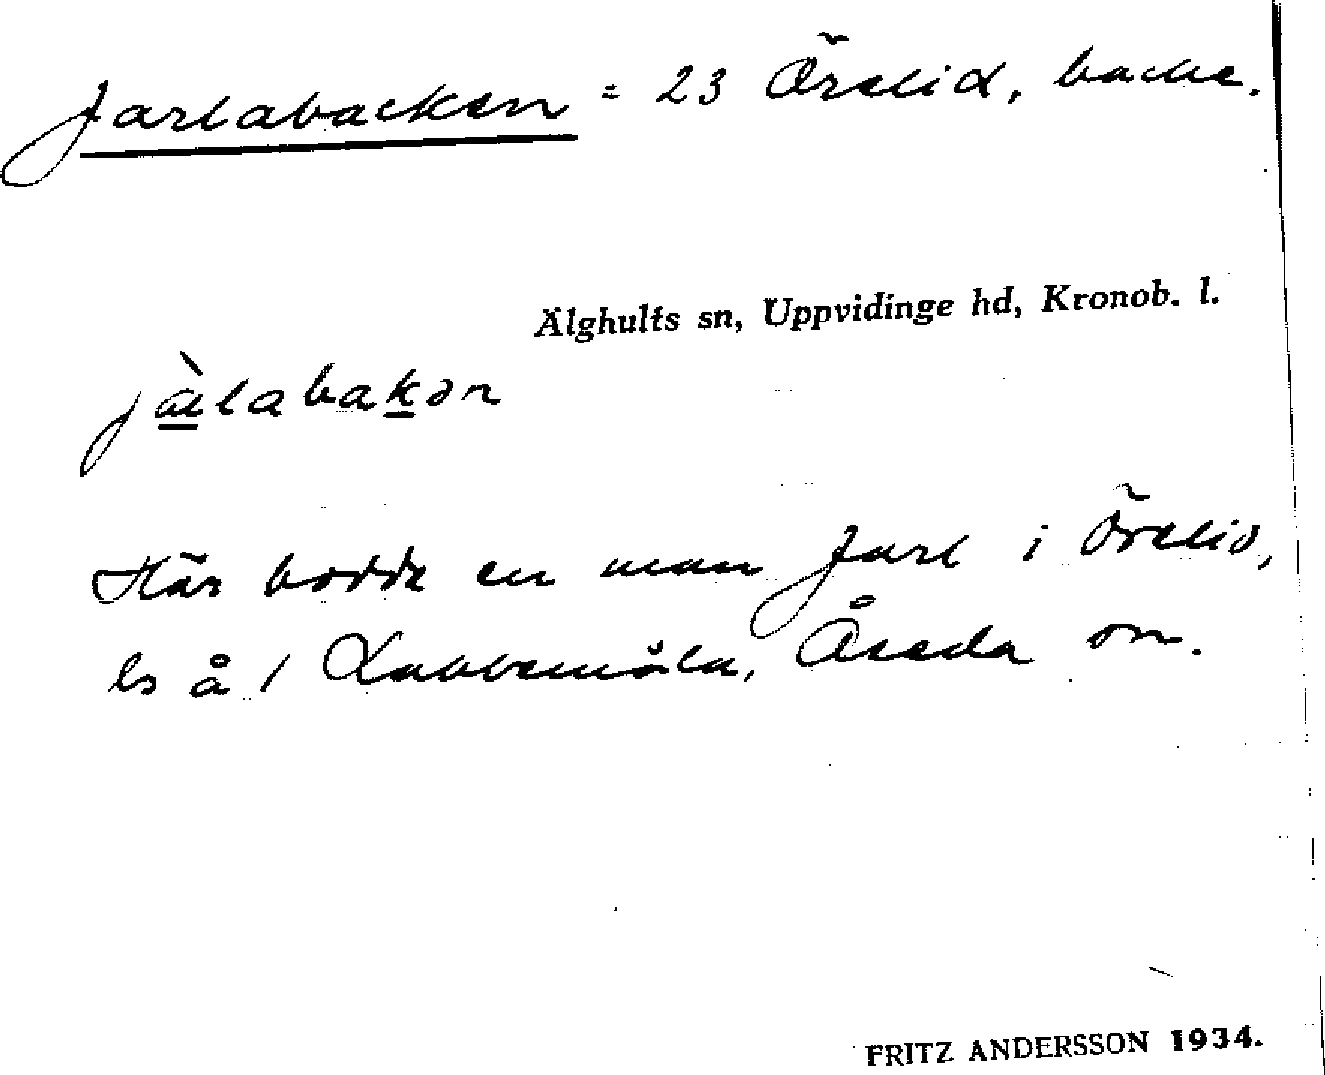 Jarlabacken = 23 Örslid, backe.
Älghults sn, Uppvidinge hd, Kronob. l.
jàlabakən
Här bodde en man Jarl i Örslid,
Labbemåla, Åseda sn.
FRITZ ANDERSSON 1934.